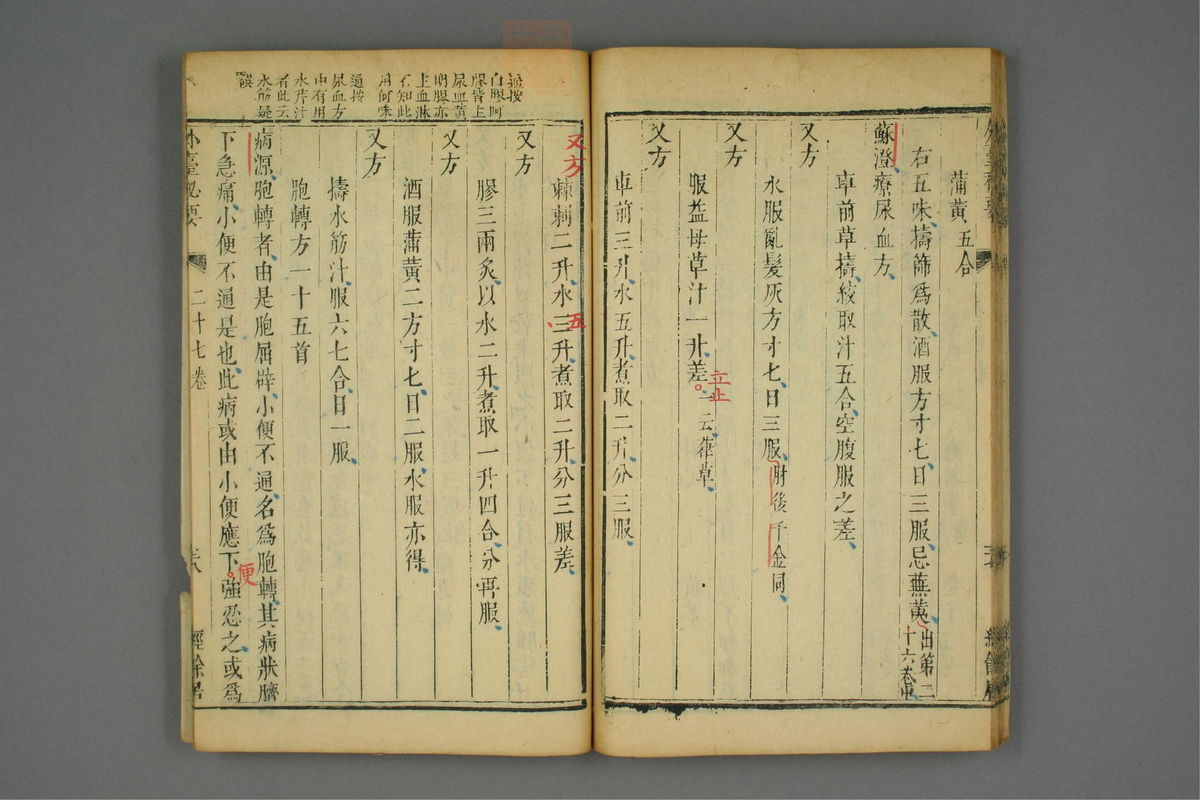 蒲黃五合
右五味擣篩爲散酒服方寸匕日三服忌蕪荑出第二十六卷中
蘇澄療尿血方
車前草擣絞取汁五合空腹服之差
又方
水服亂髮灰方寸匕日三服肘後千金同
又方
服益母草汁一升差立止一云葎草
又方
車前三升水五升煮取二升分三服
又方
棘刺二升水三升煮取二升分三服差
五
又方
膠三兩炙以水二升煮取一升四合分再服
又方
酒服蒲黃二方寸匕日二服水服亦得
又方
擣水筋汁服六七合日一服
胞轉方一十五首
病源胞轉者由是胞屈辟小便不通名爲胞轉其病狀臍
下急痛小便不通是也此病或由小便應下便強忍之或爲
通按
白膠阿
膠皆上
尿血黃
明膠亦
上血淋
不知此
用何味
通按
尿血方
中有用
水芹汁
者此云
水筋疑
誤
外臺秘要
二十七卷
經餘居